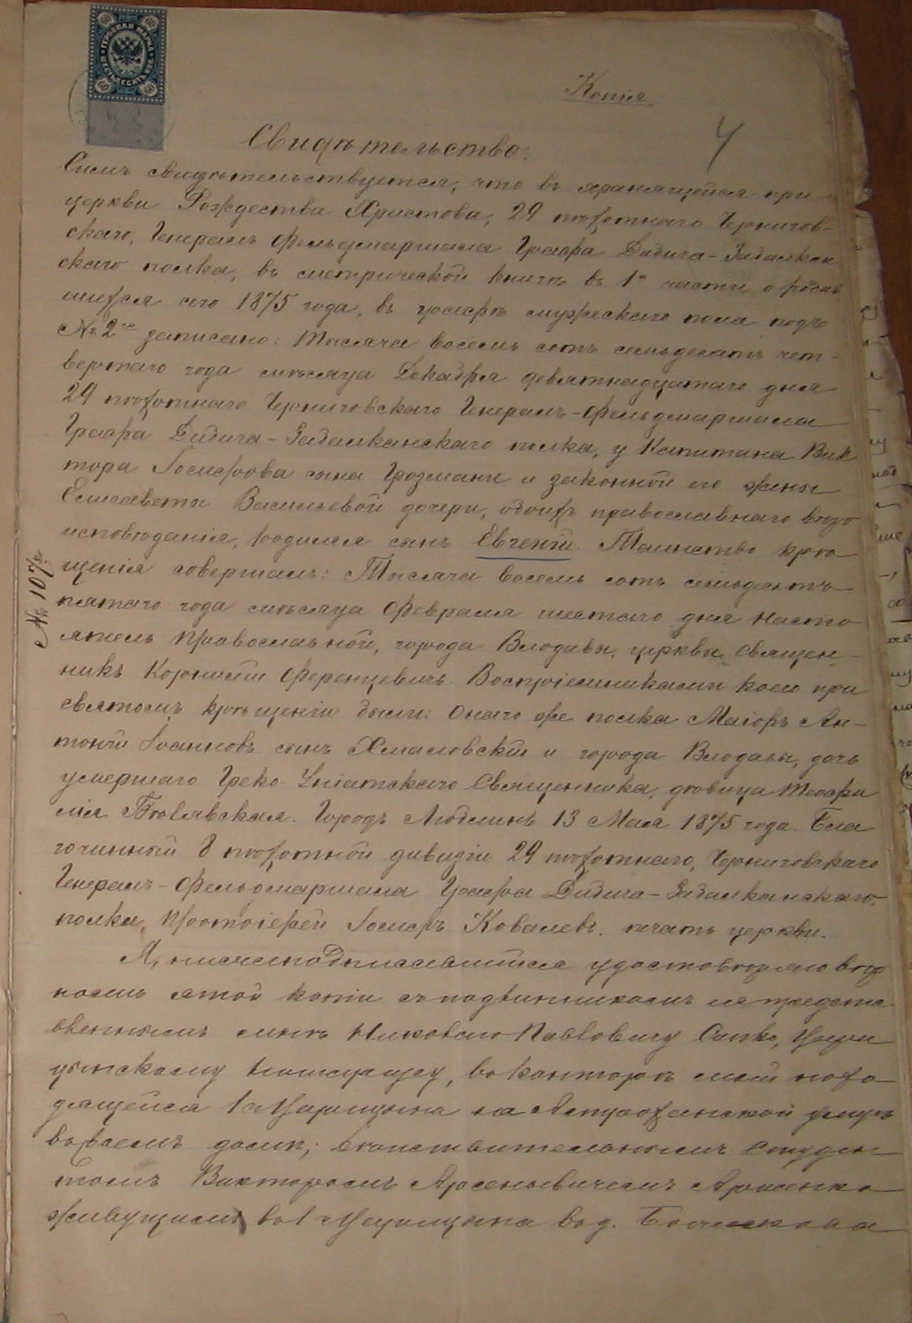 Копія
4
Свидѣтельство.
Симъ свидѣтельствуется, что въ хранящейся при
церкви Рождества Христова, 29 пѣхотнаго Чернигов-
скаго, Генералъ Фельдмаршала Графа Дибича-Забалкан
скаго полка, въ метрической книгѣ въ 1й части о родив
шихся сего 1875 года, въ графѣ мужескаго пола подъ
№ 2мъ записано: Тысяча восемь сотъ семьдесятъ чет-
вертаго года мѣсяца Декабря девятнадцатаго дня
29 пѣхотнаго Черниговскаго Генералъ-Фельдмаршала
Графа Дибича-Забалканскаго полка, у Капитана Вик
тора Іосифова сына Грозмани и законной его жены
Елисаветы Васильевой дочери, обоихъ православнаго вѣро
исповѣданія, родился сынъ Евгеній. Таинство кре
щенія совершалъ: Тысяча восемь сотъ семьдесятъ
пятаго года мѣсяца Февраля шестаго дня насто
ятель Православной, города Влодавы, церкви, Священ-
никъ Корнилій Ференцевичъ. Воспріемниками коего при
святомъ крещеніи были: Онаго же полка Маіоръ Ан-
тоній Іоанновъ сынъ Хмаловскій и города Влодавы, дочь
умершаго Греко Уніатскаго Священника, дѣвица Теофи
лія. Городъ Люблинъ 13 Мая 1875 года. Бла
гочинный 8 пѣхотной дивизіи 29 пѣхотнаго, Черниговскаго
Генералъ-Фельдмаршала Графа Дибича-Забалканскаго,
полка, Протоіерей Іосифъ Ковалевъ. печать церкви.
Я, нижеподписавшійся удостовѣряю вѣр
ность этой копіи съ подлинникомъ ея представ
леннымъ мнѣ Павловичу Сапко, Цари
цынскому Нотаріусу, въ конторѣ моей нахо
дящейся въ г. Царицынѣ на Астраханской улицѣ
въ домѣ, студен
томъ Викторомъ Арсеньевичемъ
живущимъ въ г. Царицынѣ въ д.
№ 107